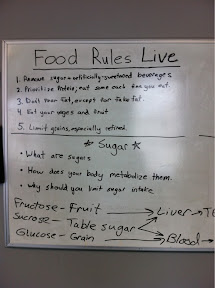 Food Rules Live
1. Remove sugar + artificially-sweetened beverages
2. Prioritize Protein, eat some each time you eat.
3. Don't Fear Fat, except for fake fat.
4. Eat your veges and fruit
5. Limit grains, especially refined.
* Sugar *
• What are sugars
• How does your body metabolize them.
• Why should you limit sugar intake
Fructose - Fruit → Liver → T
Sucrose - Table sugar
Glucose - Grain → Blood →